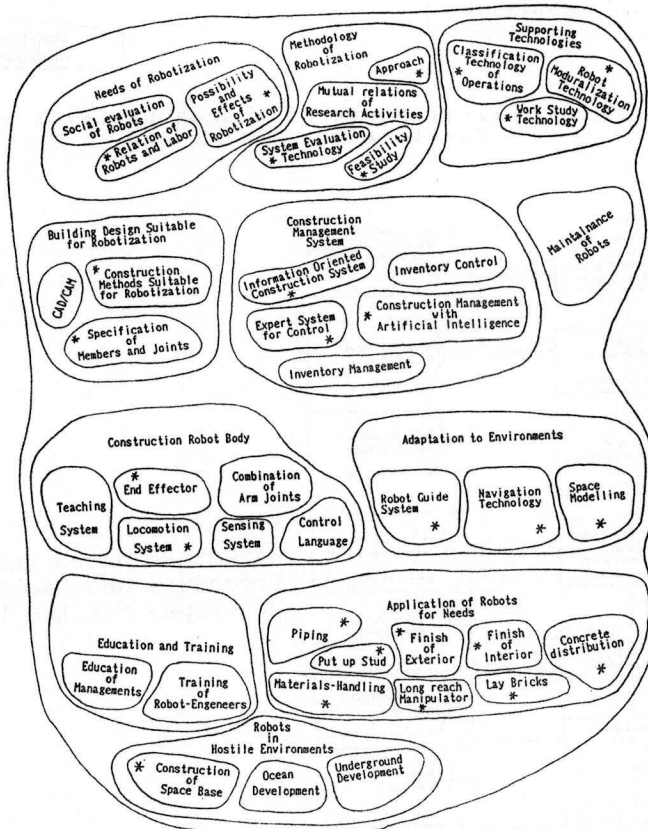 Needs of Robotization
Social evaluation
of Robots
* Relation of
Robots and Labor
Possibility
and
Effects *
of
Robotization
Methodology
of
Robotization
Approach
*
Mutual relations
of
Research Activities
System Evaluation
* Technology
Feasibility
* Study
Supporting
Technologies
Classification
Technology
* of
Operations
*
Robot
Moduralization
Technology
Work Study
* Technology
Building Design Suitable
for Robotization
CAD/CAM
* Construction
Methods Suitable
for Robotization
* Specification
of
Members and Joints
Construction
Management
System
Information Oriented
Construction System
*
Inventory Control
Expert System
for Control
*
* Construction Management
with
Artificial Intelligence
Inventory Management
Maintainance
of
Robots
Construction Robot Body
Teaching
System
*
End Effector
Combination
of
Arm Joints
Locomotion
System *
Sensing
System
Control
Language
Adaptation to Environments
Robot Guide
System
*
Navigation
Technology
*
Space
Modelling
*
Education and Training
Education
of
Managements
Training
of
Robot-Engeneers
Application of Robots
for Needs
Piping *
Put up Stud *
* Finish
of
Exterior
Finish
* of
Interior
Concrete
distribution
*
Materials-Handling
*
Long reach
Manipulator
*
Lay Bricks
*
Robots
in
Hostile Environments
* Construction
of
Space Base
Ocean
Development
Underground
Development